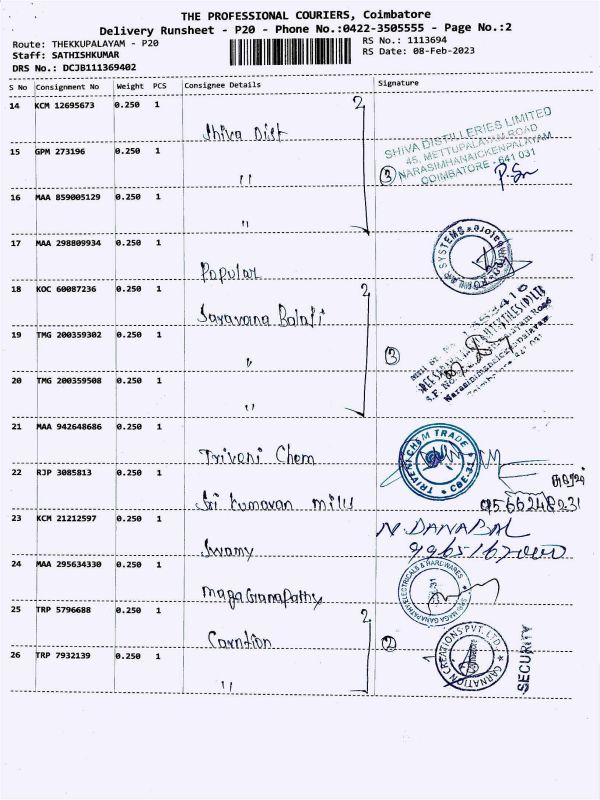 THE PROFESSIONAL COURIERS, Coimbatore
Delivery Runsheet - P20 - Phone No.:0422-3505555 - Page No.:2
Route: THEKKUPALAYAM - P20
RS No.: 1113694
Staff: SATHISHKUMAR
RS Date: 08-Feb-2023
DRS No.: DCJB111369402
S No Consignment No Weight PCS Consignee Details Signature
14 KCM 12695673 0.250 1 Shiva Dist
2
SHIVA DISTILLERIES LIMITED
45, METTUPALAYAM ROAD
NARASIMHANAICKENPALAYAM
COIMBATORE - 641 031
3
15 GPM 273196 0.250 1 "
16 MAA 859005129 0.250 1 "
17 MAA 298809934 0.250 1 Popular
18 KOC 60087236 0.250 1 Saravana Balaji
2
19 TMG 200359302 0.250 1 "
3
20 TMG 200359508 0.250 1 "
21 MAA 942648686 0.250 1 Triveni Chem
TRIVENI CHEM TRADE
CBE-31
22 RJP 3085813 0.250 1 Sri kumaran mills
9566248231
23 KCM 21212597 0.250 1 Swamy
N. DANABAL
24 MAA 295634330 0.250 1 maga Ganapathy
SRI MAGA GANAPATHY ELECTRICALS & HARDWARES
25 TRP 5796688 0.250 1 Carntion
2
2
CARNATION CREATIONS PVT. LTD.
Coimbatore
SECURITY
26 TRP 7932139 0.250 1 "